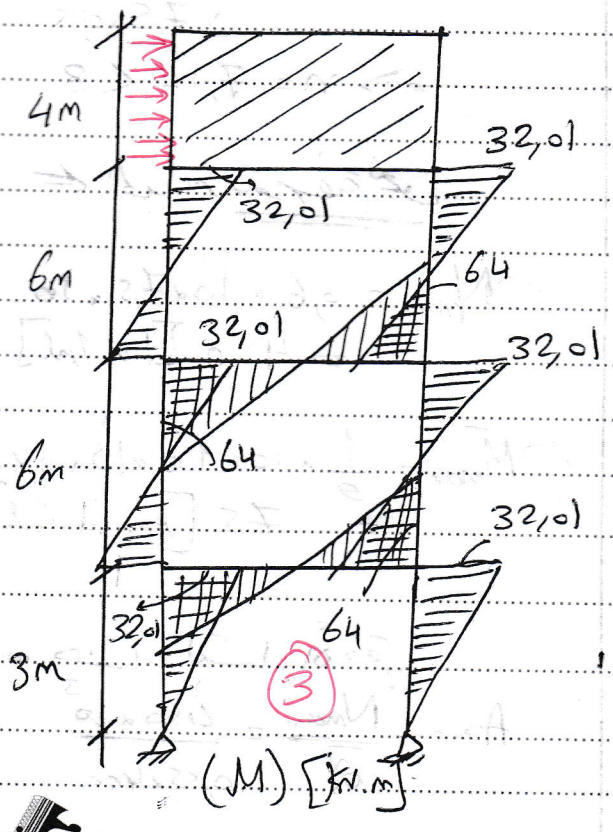 4m
32,01
32,01
6m
64
32,01
32,01
64
6m
32,01
32,01
64
3m
3
(M) [kN.m]